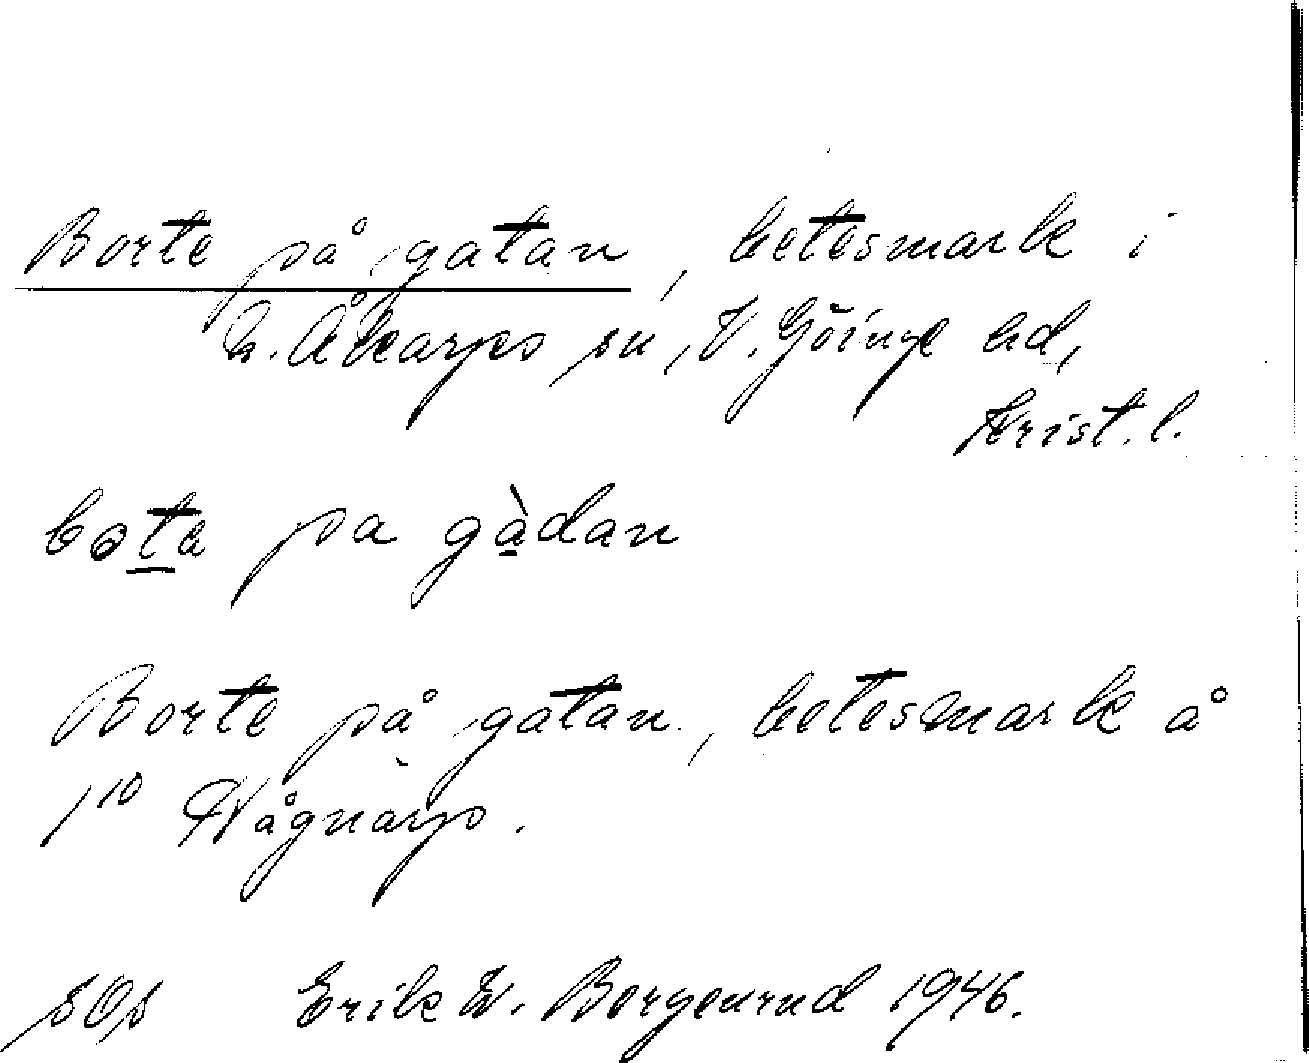 Borte på gatan, betesmark i
N. Åkarps sn, V. Göinge hd,
Krist. l.
bota pa gàdan
Borte på gatan, betesmark å
1¹⁰ Vågnarp.
sOs Erik W. Borgenrud 1946.